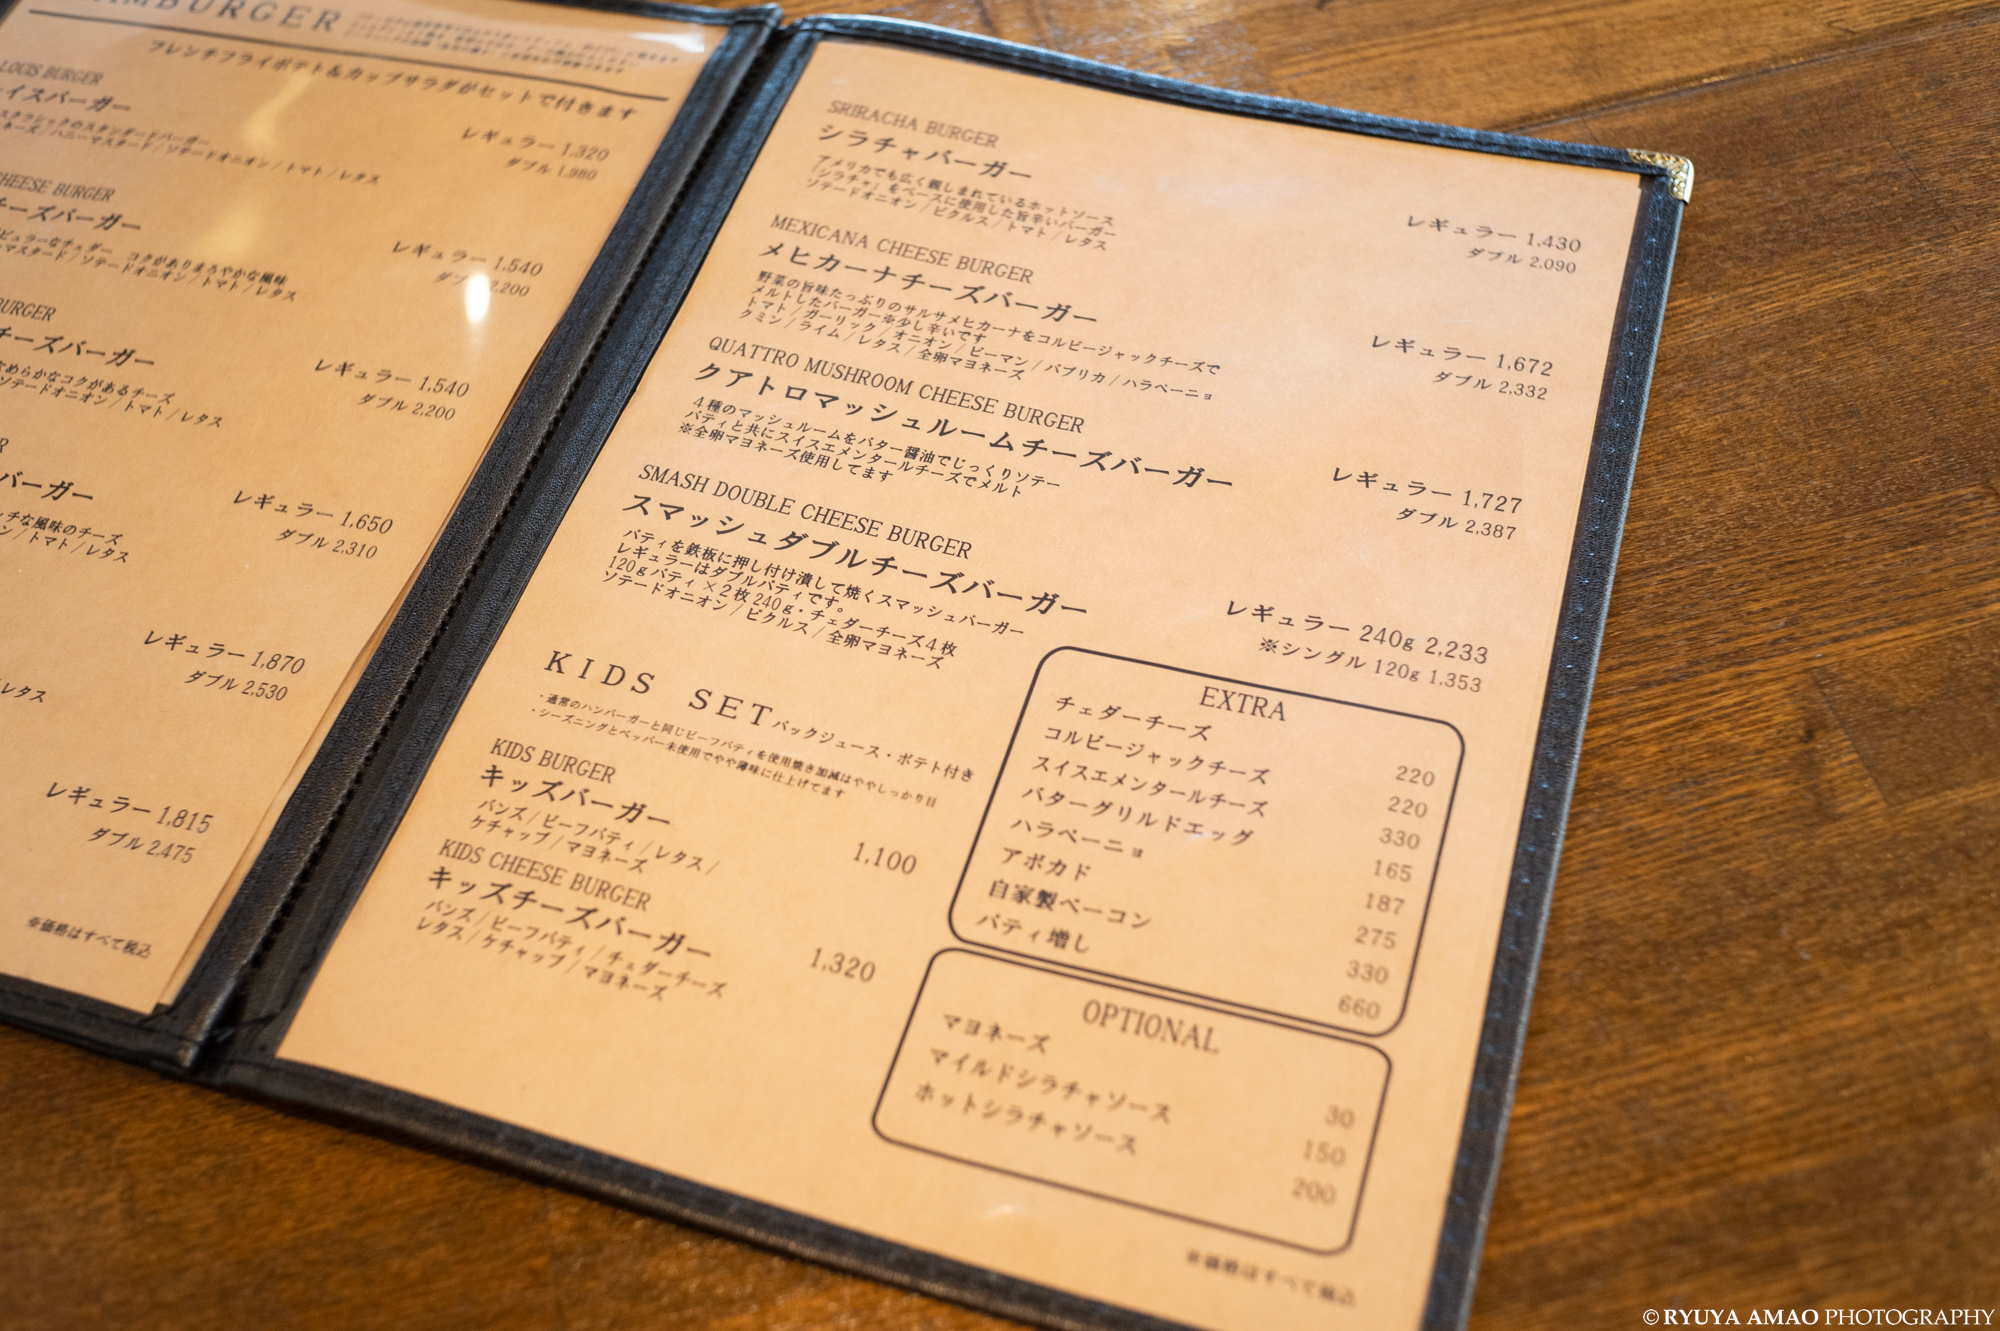 HAMBURGER
フレンチフライポテト&カップサラダがセットで付きます
LOUIS BURGER
イスバーガー
スクラシックのスタンダードバーガー
ネーズ/ハニーマスタード/ソテードオニオン/トマト/レタス
レギュラー 1,320
ダブル 1,980
CHEESE BURGER
チーズバーガー
ピュラーなチェダー コクがありまろやかな風味
マスタード/ソテードオニオン/トマト/レタス
レギュラー 1,540
ダブル 2,200
BURGER
チーズバーガー
なめらかなコクがあるチーズ
ソテードオニオン/トマト/レタス
レギュラー 1,540
ダブル 2,200
R
バーガー
チな風味のチーズ
ン/トマト/レタス
レギュラー 1,650
ダブル 2,310
レギュラー 1,870
ダブル 2,530
レタス
レギュラー 1,815
ダブル 2,475
※価格はすべて税込
SRIRACHA BURGER
シラチャバーガー
アメリカでも広く親しまれているホットソース
「シラチャ」をベースに使用した旨辛いバーガー
ソテードオニオン/ピクルス/トマト/レタス
レギュラー 1,430
ダブル 2,090
MEXICANA CHEESE BURGER
メヒカーナチーズバーガー
野菜の旨味たっぷりのサルサメヒカーナをコルビージャックチーズで
メルトしたバーガー※少し辛いです
トマト/ガーリック/オニオン/ピーマン/パプリカ/ハラペーニョ
クミン/ライム/レタス/全卵マヨネーズ
レギュラー 1,672
ダブル 2,332
QUATTRO MUSHROOM CHEESE BURGER
クアトロマッシュルームチーズバーガー
4種のマッシュルームをバター醤油でじっくりソテー
パティと共にスイスエメンタールチーズでメルト
※全卵マヨネーズ使用してます
レギュラー 1,727
ダブル 2,387
SMASH DOUBLE CHEESE BURGER
スマッシュダブルチーズバーガー
パティを鉄板に押し付け潰して焼くスマッシュバーガー
レギュラーはダブルパティです。
120gパティ×2枚240g・チェダーチーズ4枚
ソテードオニオン/ピクルス/全卵マヨネーズ
レギュラー 240g 2,233
※シングル 120g 1,353
KIDS SET パックジュース・ポテト付き
・通常のハンバーガーと同じビーフパティを使用焼き加減はややしっかり目
・シーズニングとペッパー未使用でやや薄味に仕上げてます
KIDS BURGER
キッズバーガー
バンズ/ビーフパティ/レタス/
ケチャップ/マヨネーズ
1,100
KIDS CHEESE BURGER
キッズチーズバーガー
バンズ/ビーフパティ/チェダーチーズ
レタス/ケチャップ/マヨネーズ
1,320
EXTRA
チェダーチーズ 220
コルビージャックチーズ 220
スイスエメンタールチーズ 330
バターグリルドエッグ 165
ハラペーニョ 187
アボカド 275
自家製ベーコン 330
パティ増し 660
OPTIONAL
マヨネーズ 30
マイルドシラチャソース 150
ホットシラチャソース 200
※価格はすべて税込
© RYUYA AMAO PHOTOGRAPHY